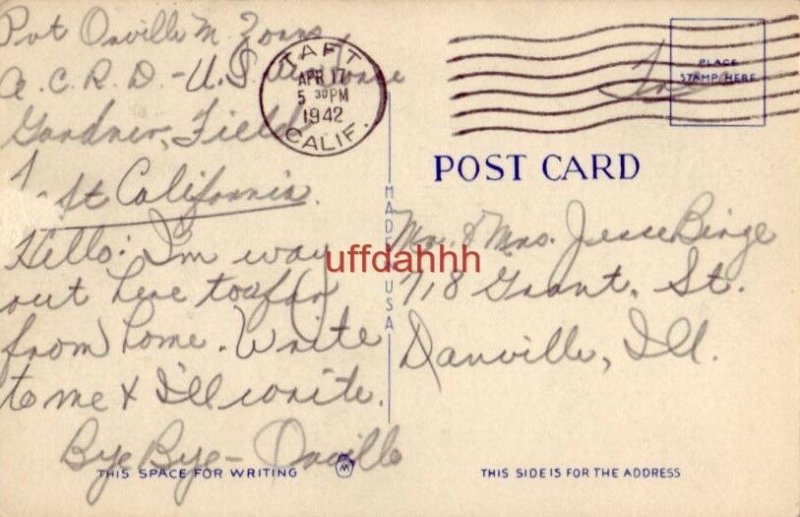 Pvt Orville M.
A.C.R.D. - U.S.
Gardner, Field
Taft California.
Hello: I'm way
out here to afar
from home. Write
to me & I'll write.
Bye Bye - Orville
THIS SPACE FOR WRITING
TAFT
APR 17
5 30 PM
1942
CALIF.
MADE USA
uffdahhh
PLACE
STAMP HERE
POST CARD
Mr. & Mrs. Jesse Binge
718 Grant, St.
Danville, Ill.
THIS SIDE IS FOR THE ADDRESS